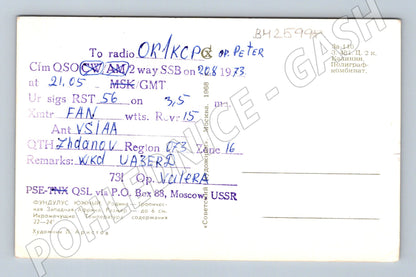 BH2599x
To radio OK1KCP op. PETER
Cfm QSO CW/AM/2 way SSB on 20.8 1973
at 21.05 MSK/GMT
Ur sigs RST 56 on 3,5 m
Xmtr FAN wtts. Rcvr 15
Ant VS1AA
QTH Zhdanov Region 073 Zone 16
Remarks: wkd UA3ER2
73! Op. valERA
PSE-TNX QSL via P.O. Box 88, Moscow, USSR
ФУНДУЛУС ЮЖНЫЙ
22—24°
Художник
«Советский художник». Москва. 1968
Зак. 110
Калинин.
Полиграф-
комбинат.
POHLEDNICE - GASH